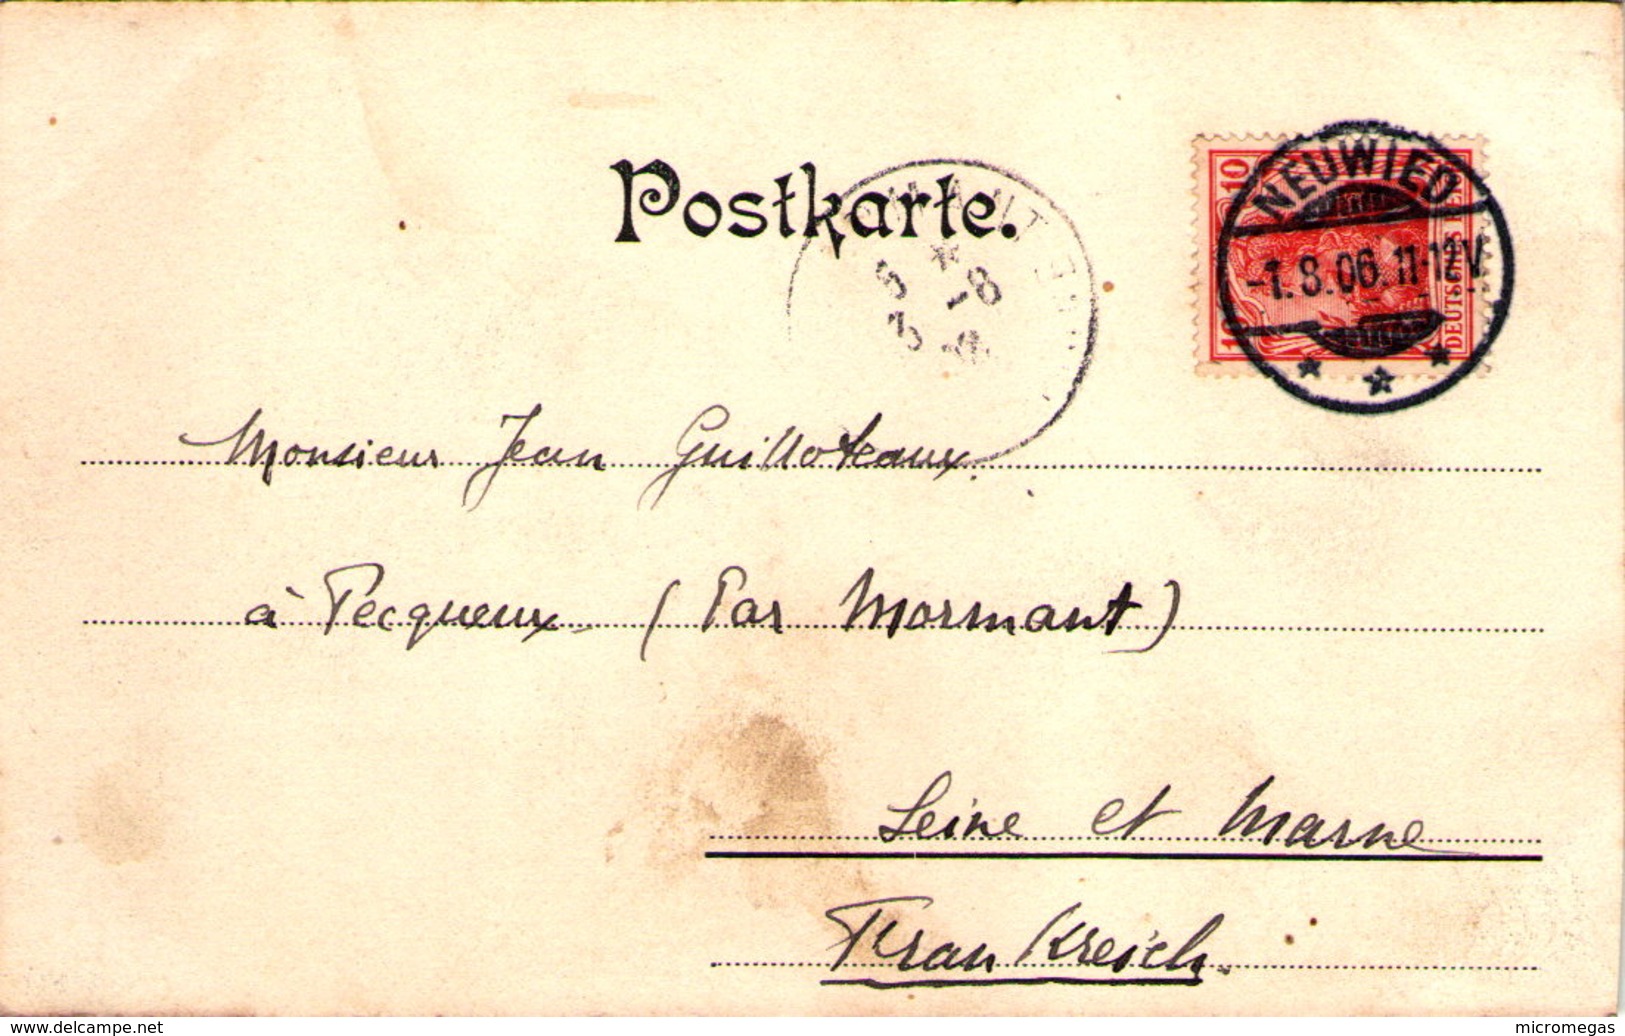 Postkarte.
10
NEUWIED
-1.8.06.11-12V.
DEUTSCHES
Monsieur Jean Guilloteaux
à Pecqueux (Par Mormant)
Seine et Marne
Frankreich.
www.delcampe.net
micromegas